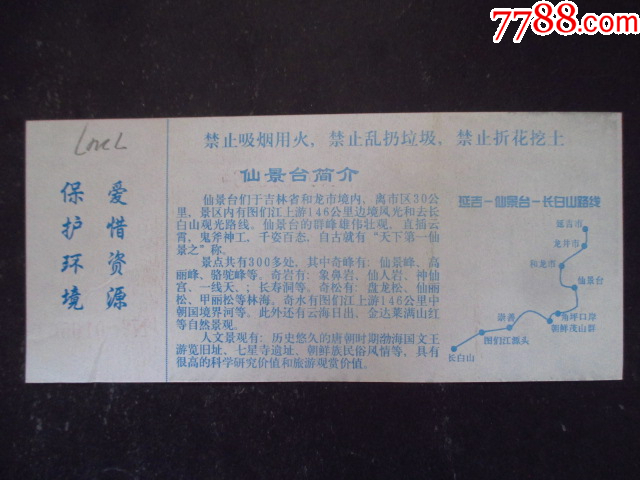 7788.com
LoveL
爱惜资源
保护环境
禁止吸烟用火，禁止乱扔垃圾，禁止折花挖土
仙景台简介
仙景台们于吉林省和龙市境内，离市区30公
里，景区内有图们江上游146公里边境风光和去长
白山观光路线。仙景台的群峰雄伟壮观，直插云
霄，鬼斧神工，千姿百态，自古就有“天下第一仙
景之”称。
景点共有300多处，其中奇峰有：仙景峰、高
丽峰、骆驼峰等。奇岩有：象鼻岩、仙人岩、神仙
宫、一线天、；长寿洞等。奇松有：盘龙松、仙丽
松、甲丽松等林海。奇水有图们江上游146公里中
朝国境界河等。此外还有云海日出、金达莱满山红
等自然景观。
人文景观有：历史悠久的唐朝时期渤海国文王
游览旧址、七星寺遗址、朝鲜族民俗风情等，具有
很高的科学研究价值和旅游观赏价值。
延吉－仙景台－长白山路线
延吉市
龙井市
和龙市
仙景台
南坪口岸
朝鲜茂山群
崇善
图们江源头
长白山